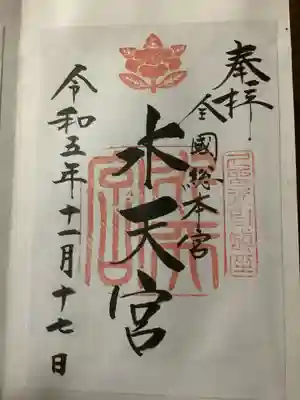 奉拝
全國総本宮
水天宮
令和五年十一月十七日